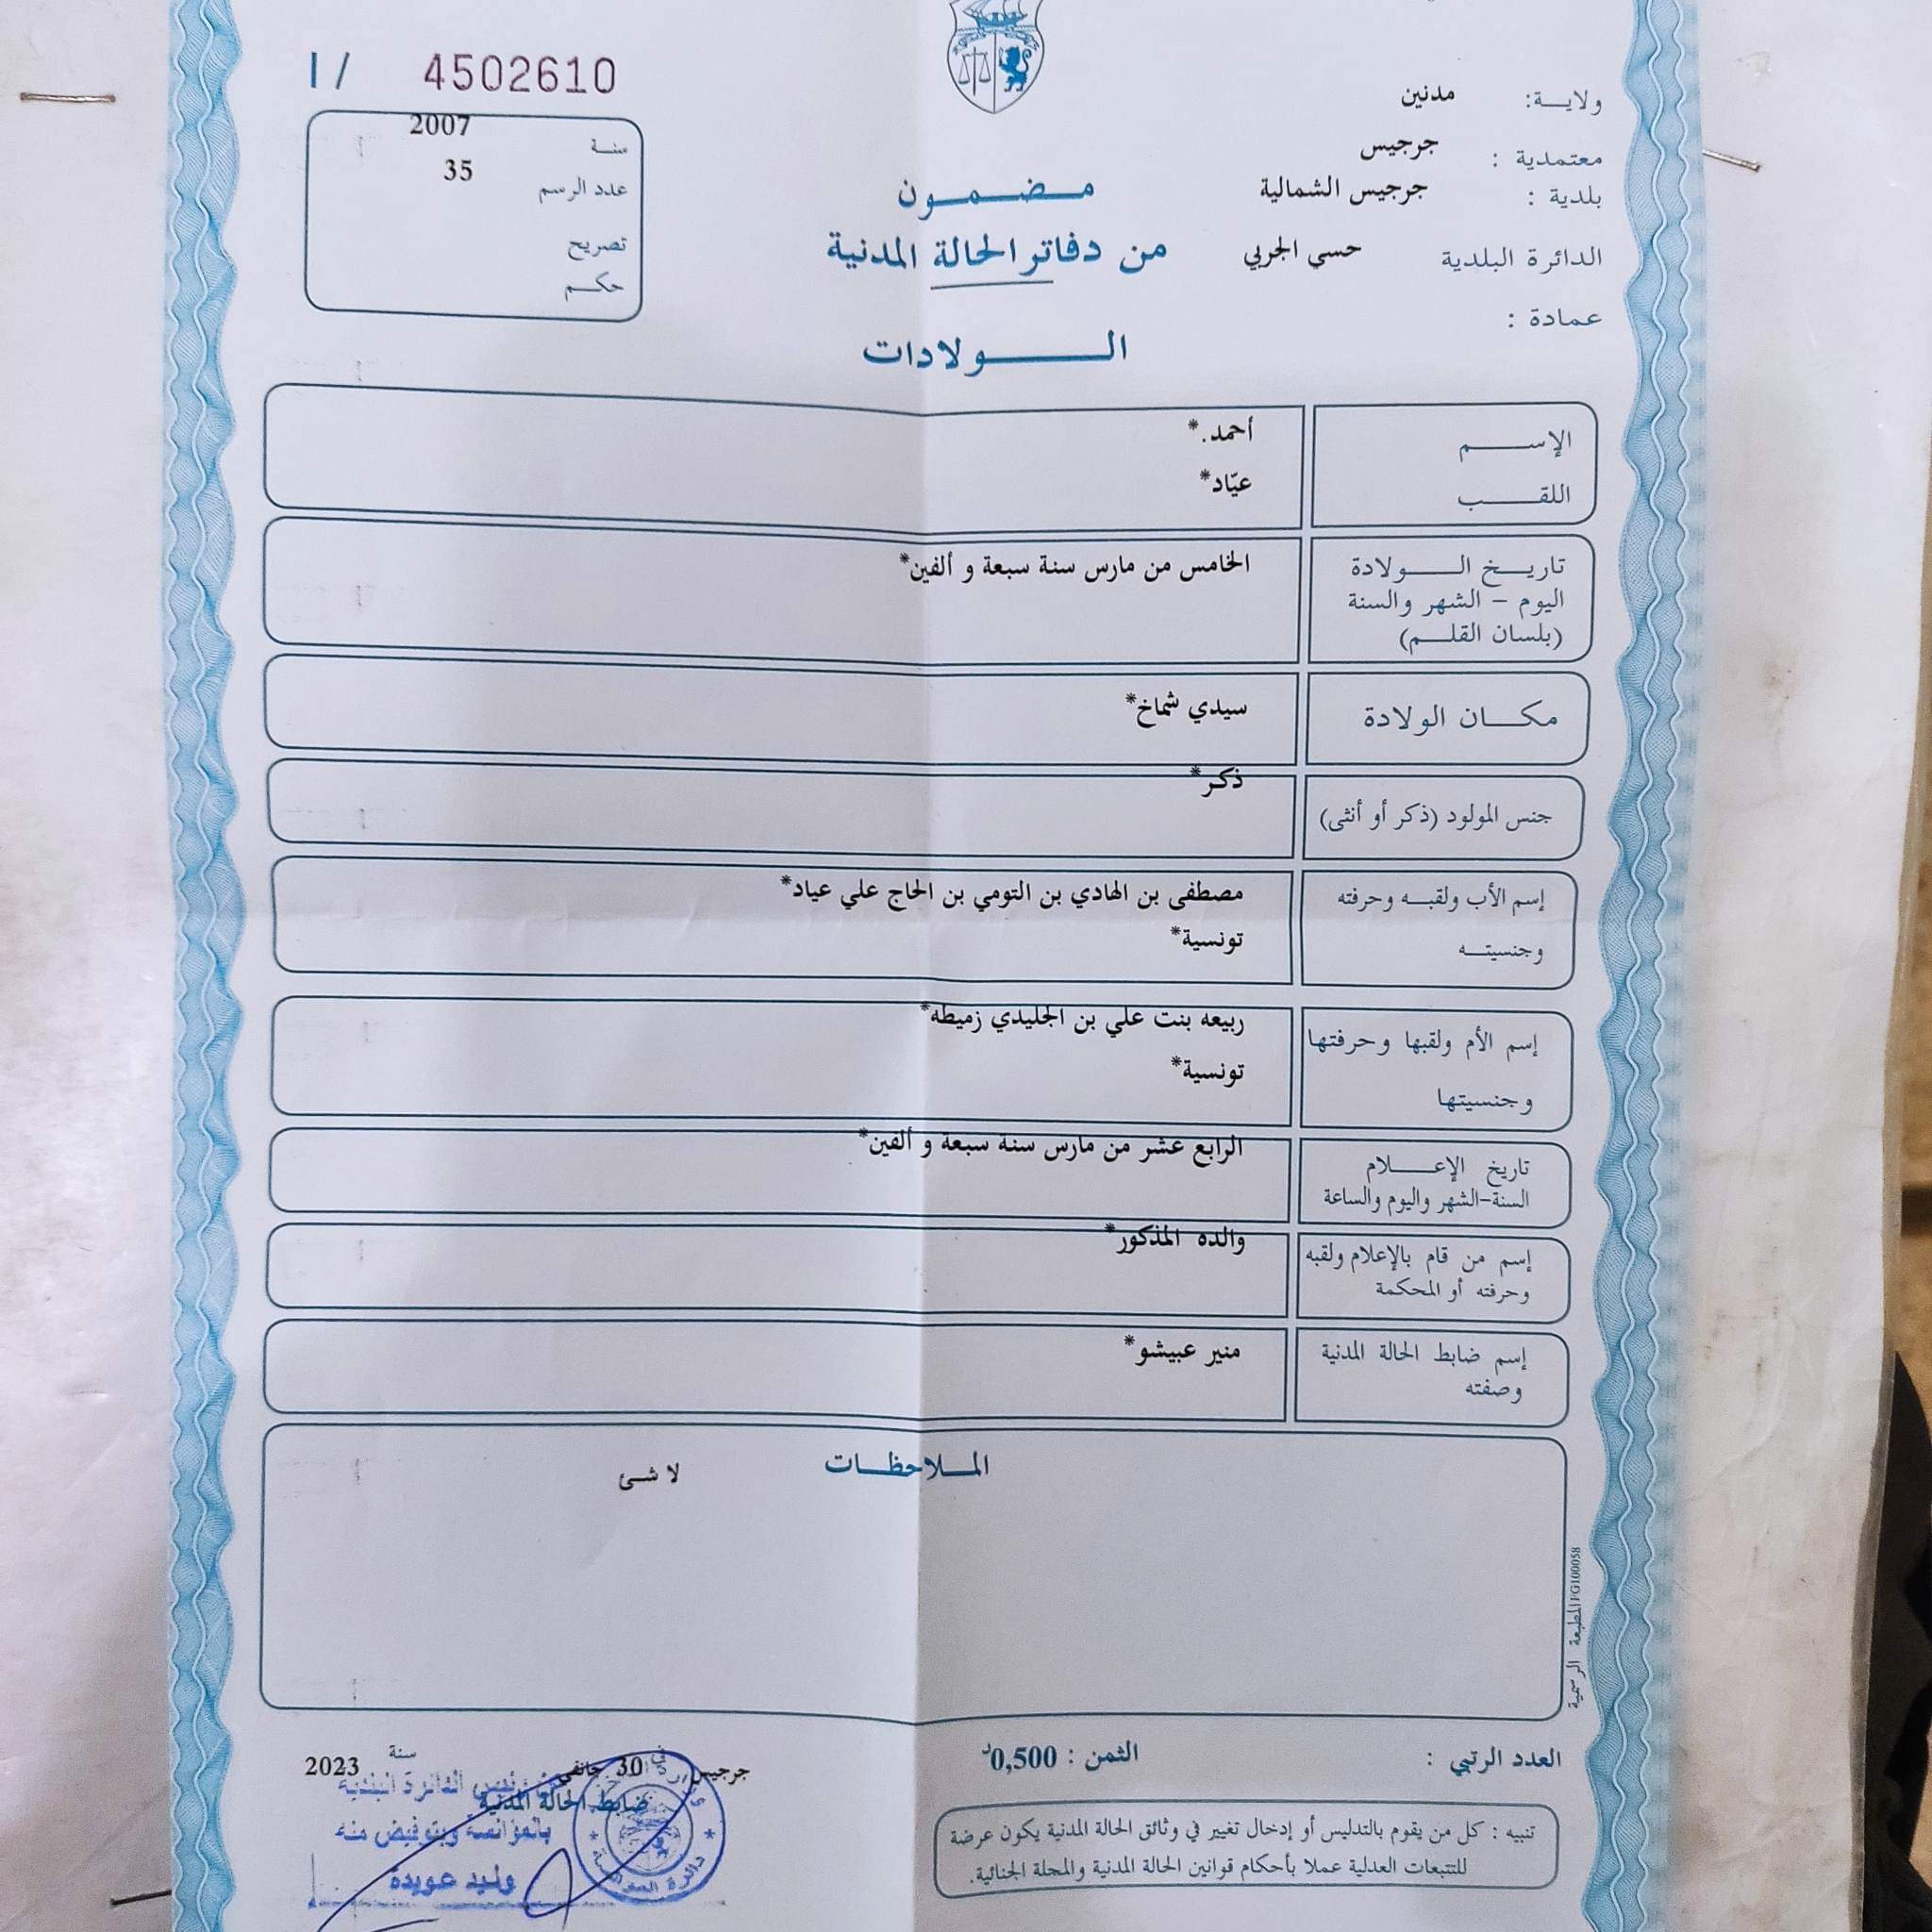 I / 4502610
ولايـــة: مدنين
معتمدية : جرجيس
بلدية : جرجيس الشمالية
الدائرة البلدية حسي الجربي
عمادة :
سنـة 2007
عدد الرسم 35
تصريح
حكـم
مـضـمـون
من دفاتر الحالة المدنية
الـولادات
الإسـم أحمد.*
اللقـب عيّاد*
تاريـخ الـولادة
اليوم – الشهر والسنة
(بلسان القلـم)
الخامس من مارس سنة سبعة و ألفين*
مكـان الولادة سيدي شماخ*
جنس المولود (ذكر أو أنثى) ذكر*
إسم الأب ولقبـه وحرفته مصطفى بن الهادي بن التومي بن الحاج علي عياد*
وجنسيتـه تونسية*
إسم الأم ولقبها وحرفتها ربيعه بنت علي بن الجليدي زميطه*
وجنسيتها تونسية*
تاريخ الإعـلام
السنة-الشهر واليوم والساعة
الرابع عشر من مارس سنة سبعة و ألفين*
إسم من قام بالإعلام ولقبه
وحرفته أو المحكمة
والده المذكور*
إسم ضابط الحالة المدنية
وصفته
منير عبيشو*
المـلاحظـات
لا شئ
المطبعة الرسمية FG100058
العدد الرتبي :
الثمن : 0,500د
جرجيس 30 جانفي سنة 2023
ضابط الحالة المدنية
عن رئيس الدائرة البلدية
وبتفويض منه
وليد عويدة
تنبيه : كل من يقوم بالتدليس أو إدخال تغيير في وثائق الحالة المدنية يكون عرضة
للتتبعات العدلية عملا بأحكام قوانين الحالة المدنية والمجلة الجنائية.